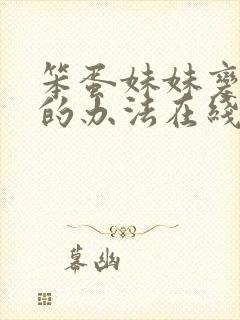 笨蛋妹妹
的办法在线
幕幽